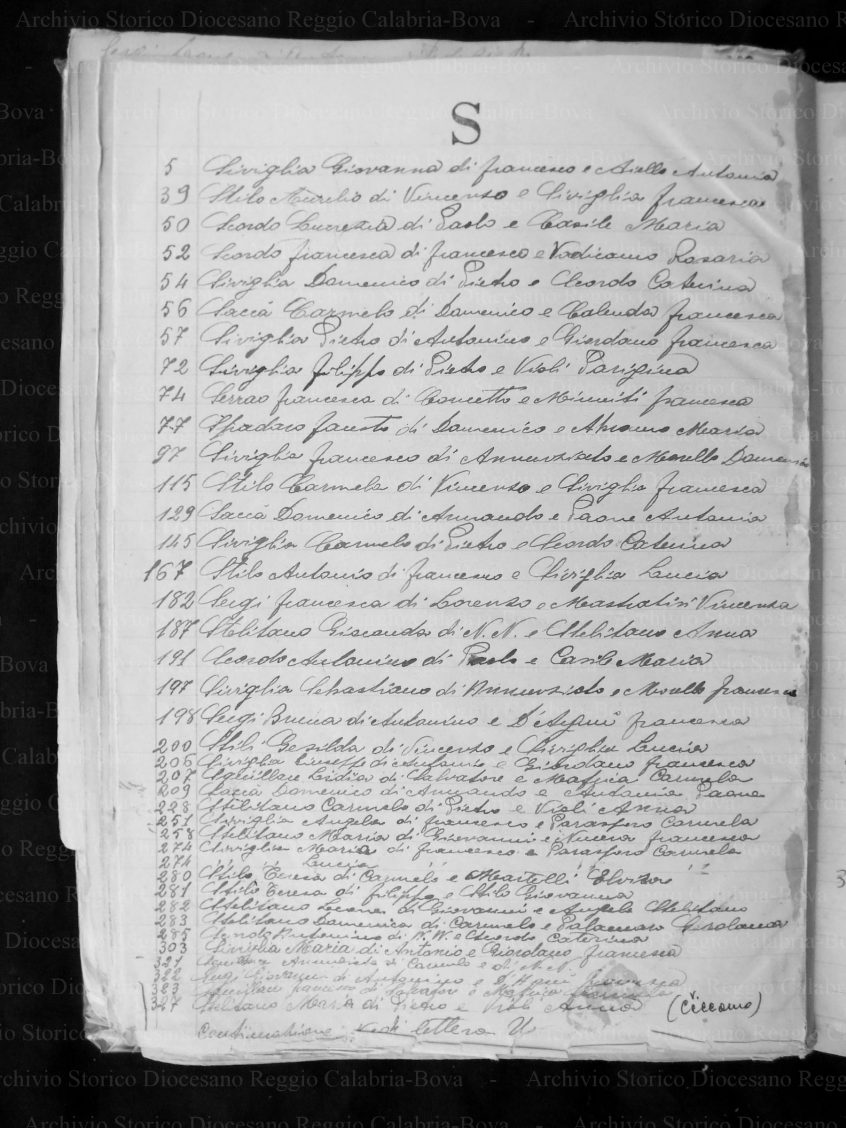 S
5 Siviglia Giovanna di Francesco e Aiello Antonia
39 Stilo Aurelio di Vincenzo e Siviglia Francesca
50 Scordo Lucrezia di Paolo e Casile Maria
52 Scordo Francesca di Francesco e Vadicamo Rosaria
54 Siviglia Domenico di Pietro e Scordo Caterina
56 Saccà Carmelo di Domenico e Calenda Francesca
57 Siviglia Pietro di Antonino e Giordano Francesca
72 Siviglia Filippo di Pietro e Violi Parigina
74 Serrao Francesca di Concetto e Minniti Francesca
77 Spadaro Fausto di Domenico e Maria
97 Siviglia Francesco di Annunziato e Morello
115 Stilo Carmela di Vincenzo e Siviglia Francesca
129 Saccà Domenico di Armando e Paone Antonia
145 Siviglia Carmelo di Pietro e Scordo Caterina
167 Stilo Antonio di Francesco e Siviglia Lucia
182 Sergi Francesca di Lorenzo e Vincenza
187 Stelitano Gioconda di N. N. e Stelitano Anna
191 Scordo Antonino di Paolo e Casile Maria
197 Siviglia Sebastiano di Annunziato e Morello Francesca
198 Sergi Bruna di Antonino e D'Aguì Francesca
200 Stilo Gesilda di Vincenzo e Siviglia Lucia
206 Siviglia Giuseppe di Antonio e Giordano Francesca
207 Lidia di Salvatore e Maffia Carmela
209 Saccà Domenico di Armando e Antonia Paone
228 Stelitano Carmelo di Pietro e Violi Anna
251 Siviglia Angela di Francesco e Carmela
258 Stelitano Maria di Giovanni e Francesca
274 Siviglia Maria di Francesco e Carmela
274 " " Lucia " " "
280 Stilo Teresa di Carmelo e Martelli
281 Stilo Teresa di Filippo e Stilo Giovanna
282 Stelitano Leone di Giovanni e Angela Stelitano
283 Stelitano Domenica di Carmelo e Palamara Girolama
285 Scordo Antonino di N. N. e Scordo Caterina
303 Siviglia Maria di Antonio e Giordano Francesca
321 Annunziato di Carmelo e di N. N.
322 Sergi Giovanni di Antonino e D'Aguì Francesca
323 Francesco di Salvatore e Maffia Carmela
327 Stelitano Maria di Pietro e Violi Anna (Ciccomo)
Continuazione vedi lettera U
Archivio Storico Diocesano Reggio Calabria-Bova